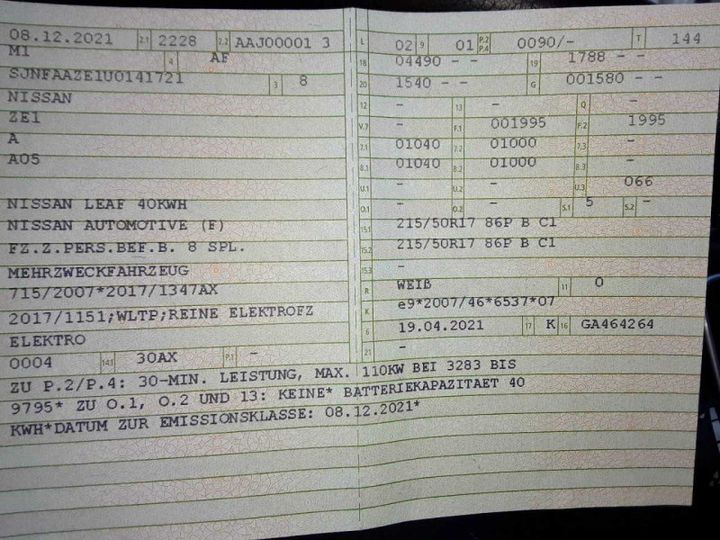 08.12.2021 2.1 2228 2.2 AAJ00001 3
M1 4 AF
SJNFAAZE1U0141721 3 8
NISSAN
ZE1
A
A05
NISSAN LEAF 40KWH
NISSAN AUTOMOTIVE (F)
FZ.Z.PERS.BEF.B. 8 SPL.
MEHRZWECKFAHRZEUG
715/2007*2017/1347AX
2017/1151;WLTP;REINE ELEKTROFZ
ELEKTRO
0004 14.1 30AX P.1 -
L 02 9 01 P.2 P.4 0090/- T 144
18 04490 - - 19 1788 - -
20 1540 - - G 001580 - -
12 - 13 - Q -
V.7 - F.1 001995 F.2 1995
7.1 01040 7.2 01000 7.3 -
8.1 01040 8.2 01000 8.3 -
U.1 - U.2 - U.3 066
O.1 - O.2 - S.1 5 S.2 -
15.1 215/50R17 86P B C1
15.2 215/50R17 86P B C1
15.3 -
R WEIß 11 0
K e9*2007/46*6537*07
6 19.04.2021 17 K 16 GA464264
21 -
ZU P.2/P.4: 30-MIN. LEISTUNG, MAX. 110KW BEI 3283 BIS
9795* ZU O.1, O.2 UND 13: KEINE* BATTERIEKAPAZITAET 40
KWH*DATUM ZUR EMISSIONSKLASSE: 08.12.2021*